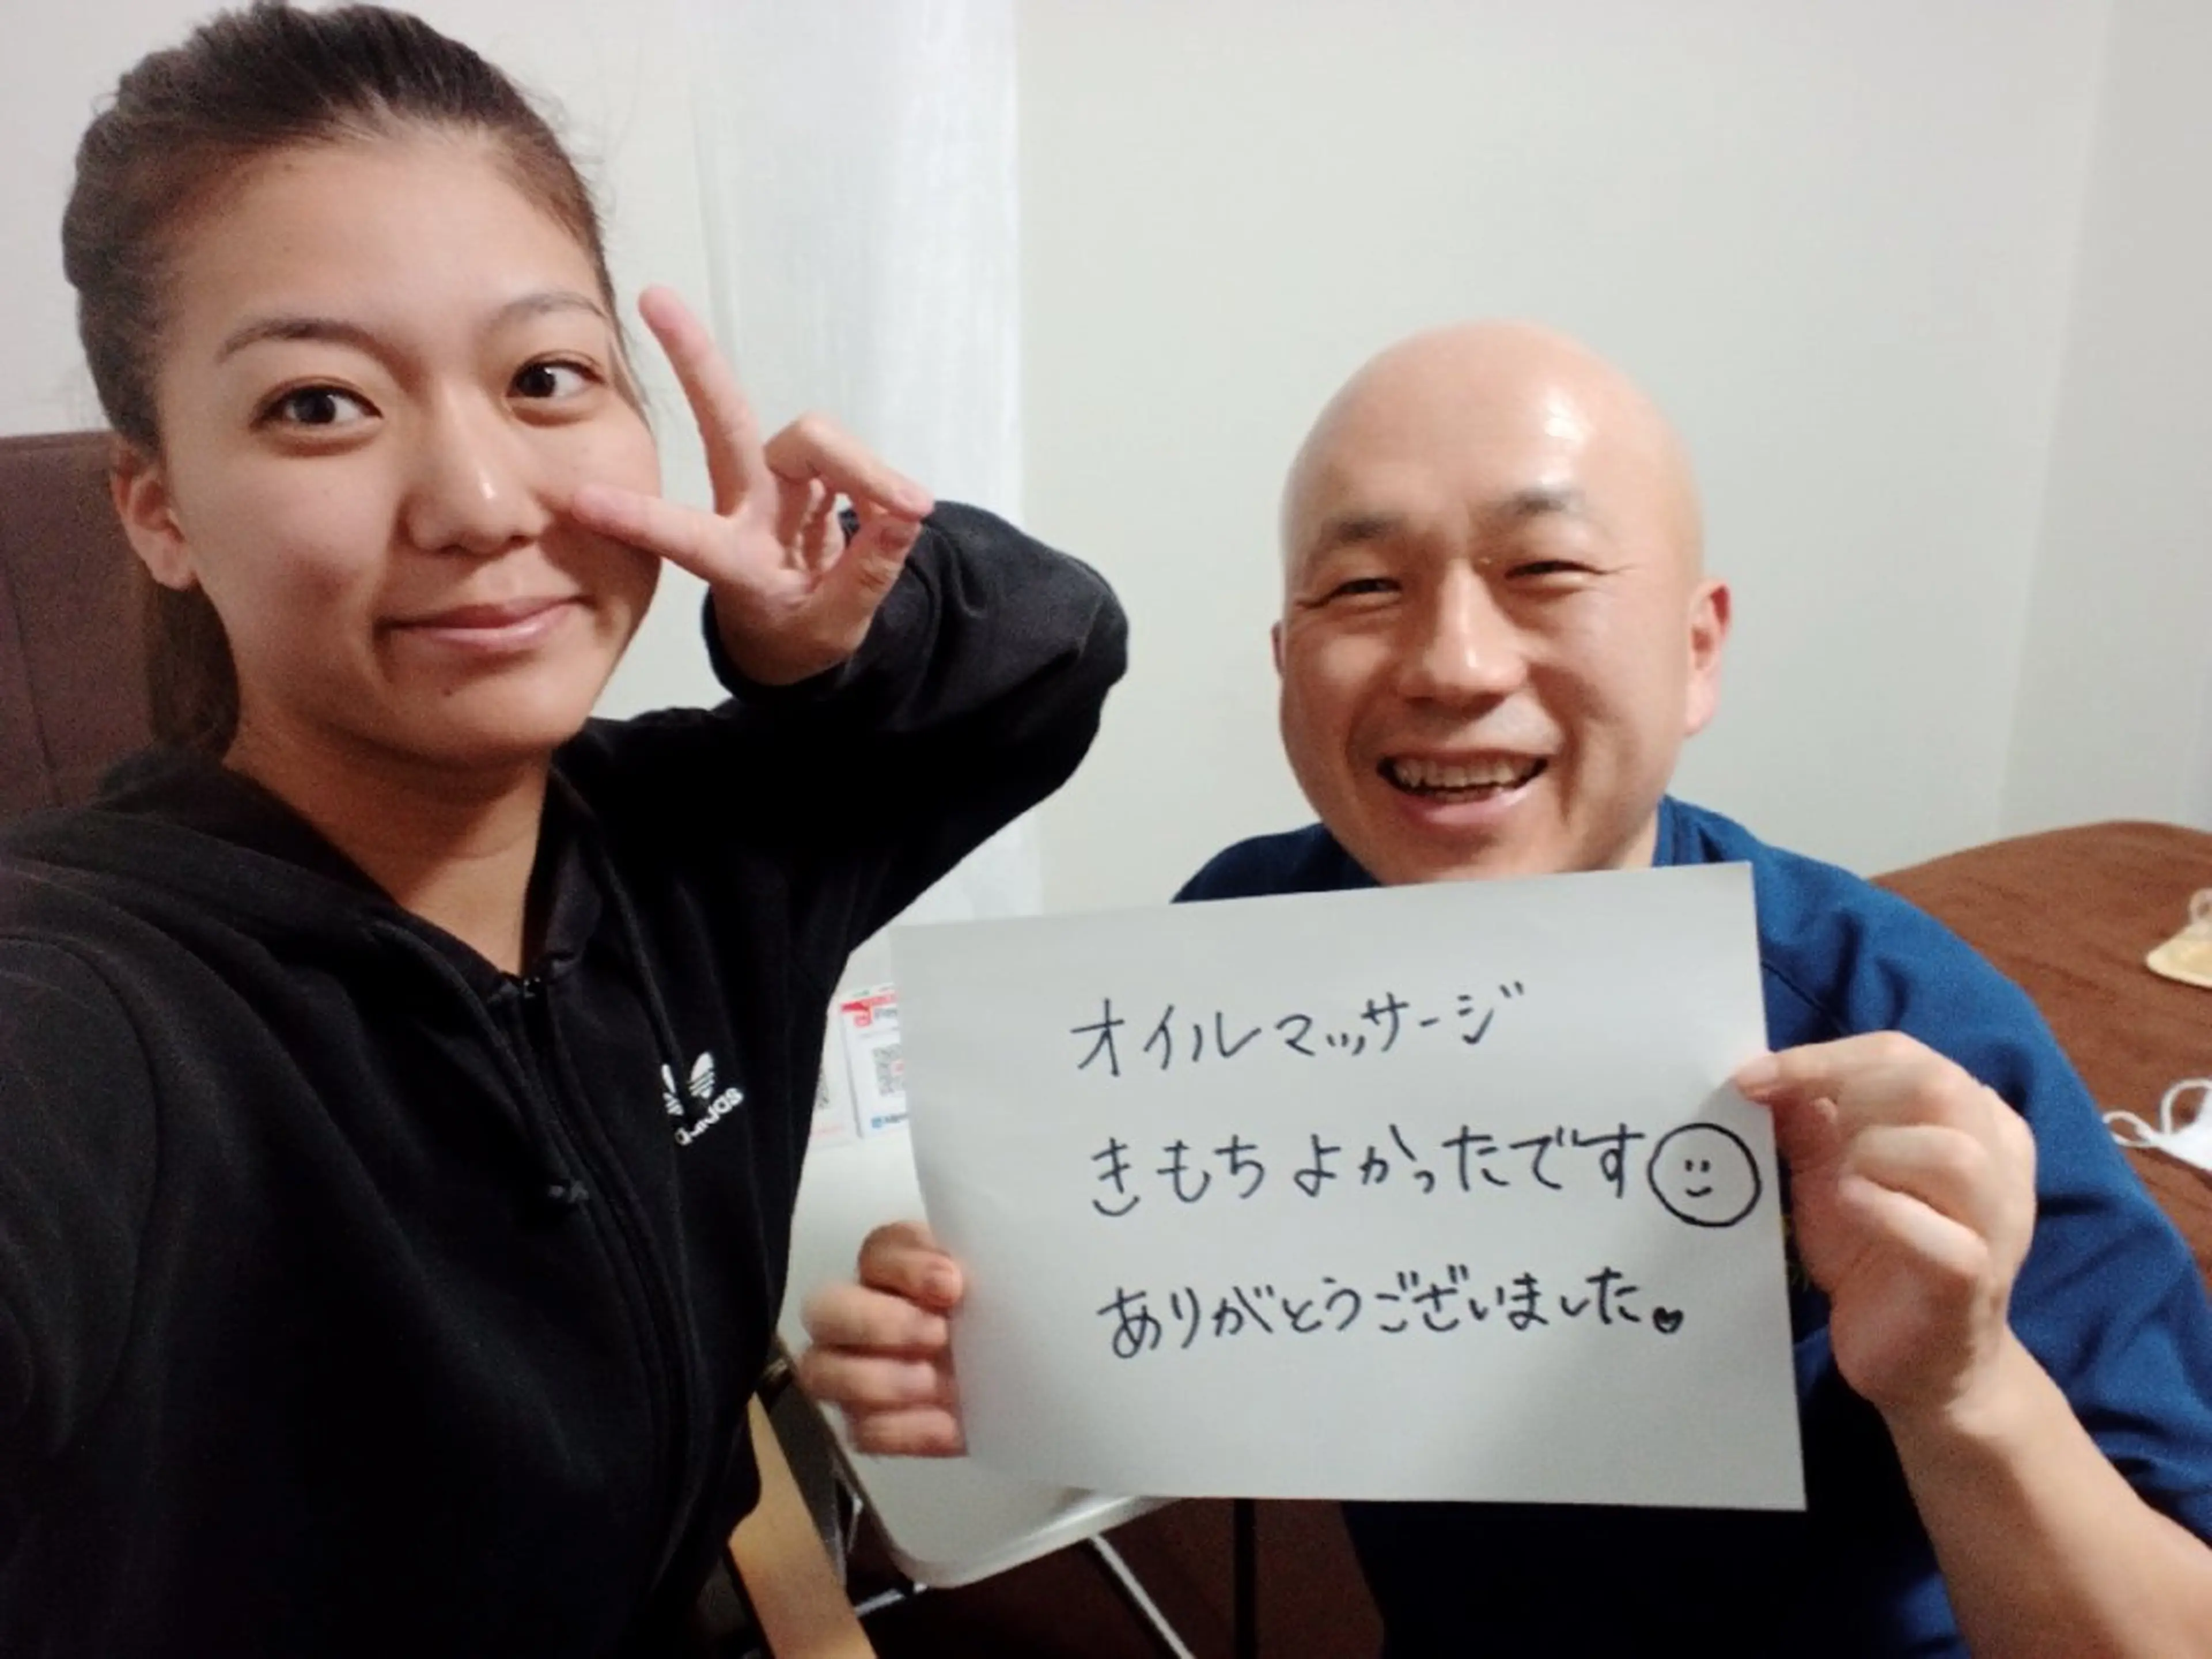 オイルマッサージ
きもちよかったです
ありがとうございました
adidas